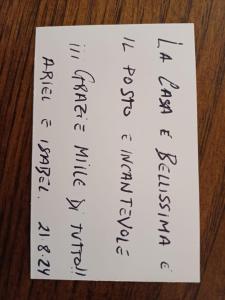 LA CASA E BELLISSIMA E
IL POSTO E INCANTEVOLE
¡¡¡ GRAZIE MILLE DI TUTTO!!
ARIEL E ISABEL. 21-8-24